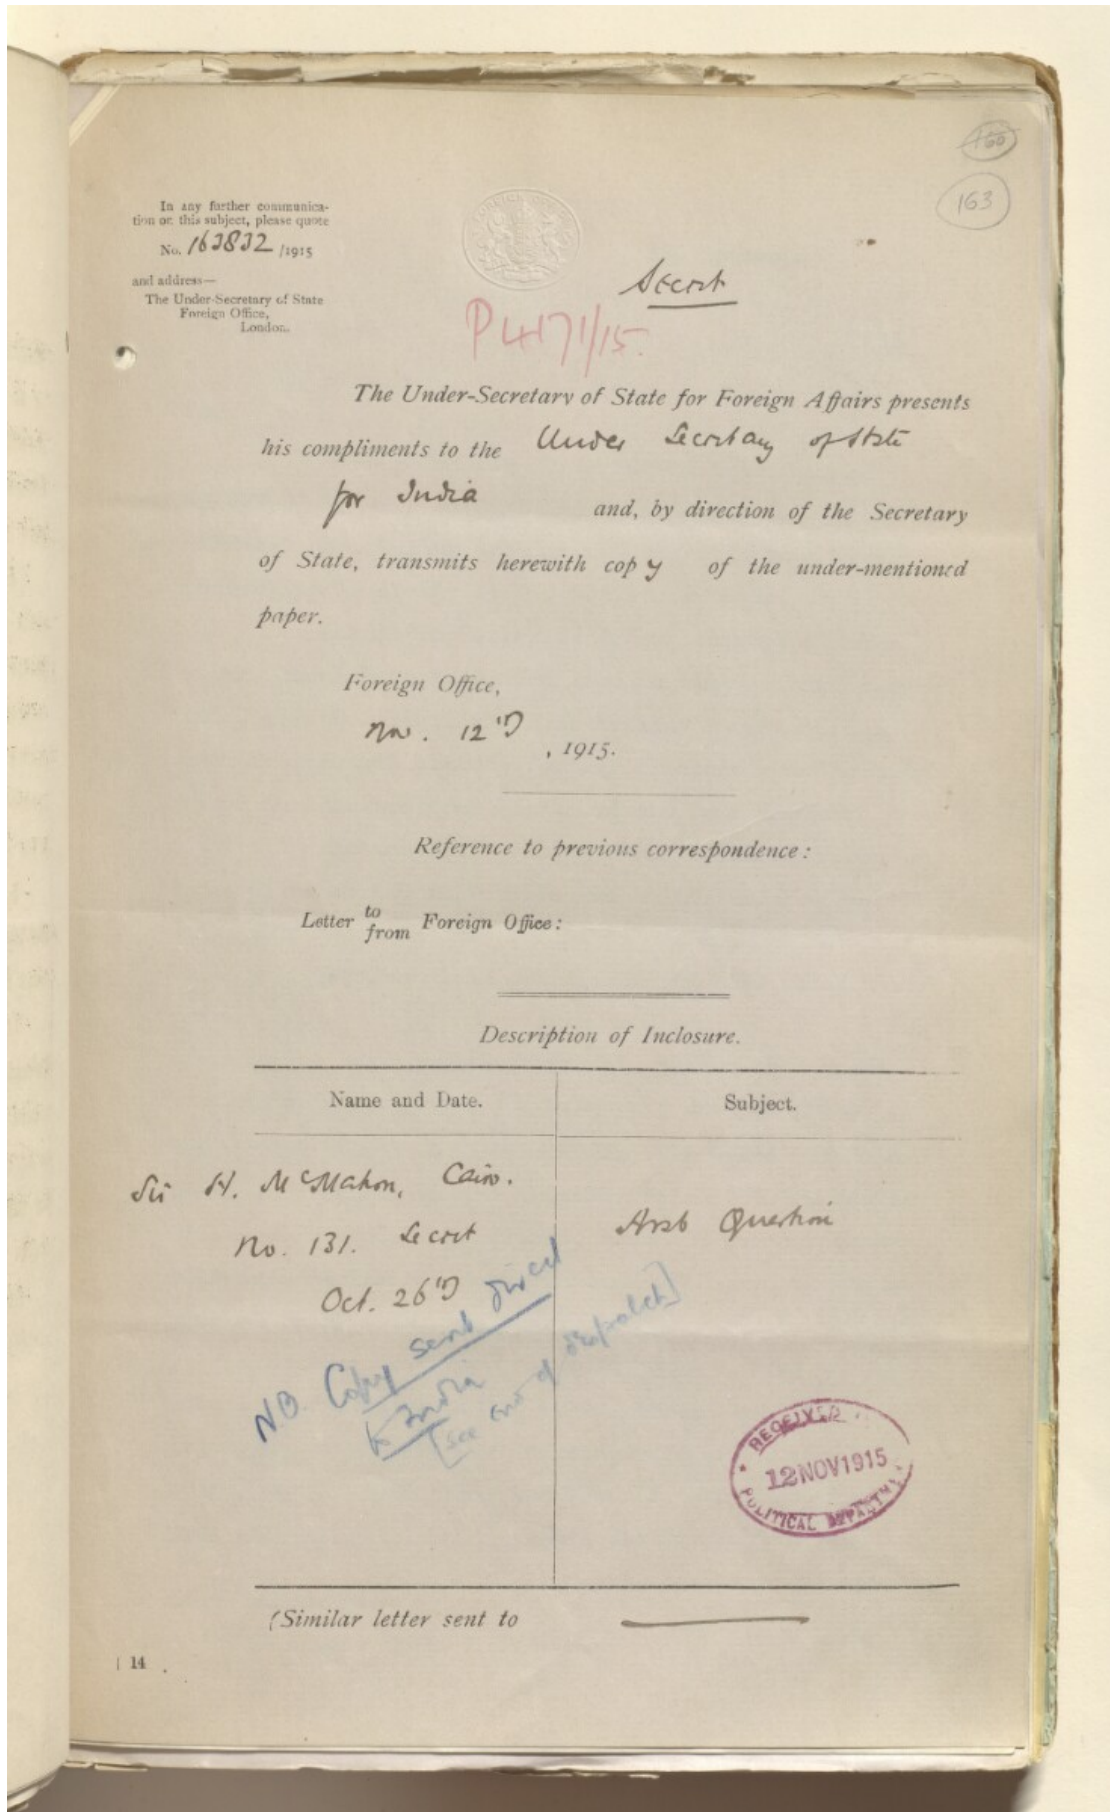 160
163
In any further communica-
tion on this subject, please quote
No. 163832 /1915
and address—
The Under-Secretary of State
Foreign Office,
London.
Secret
P4171/15.
The Under-Secretary of State for Foreign Affairs presents
his compliments to the Under Secretary of State
for India and, by direction of the Secretary
of State, transmits herewith copy of the under-mentioned
paper.
Foreign Office,
Nov. 12th, 1915.
Reference to previous correspondence:
Letter to from Foreign Office:
Description of Inclosure.
Name and Date. Subject.
Sir H. McMahon, Cairo.
No. 131. Secret
Oct. 26th
Arab Question
N.B. Copy sent direct
to India
[see end of despatch]
RECEIVED
12 NOV 1915
POLITICAL DEPARTMENT
(Similar letter sent to
14